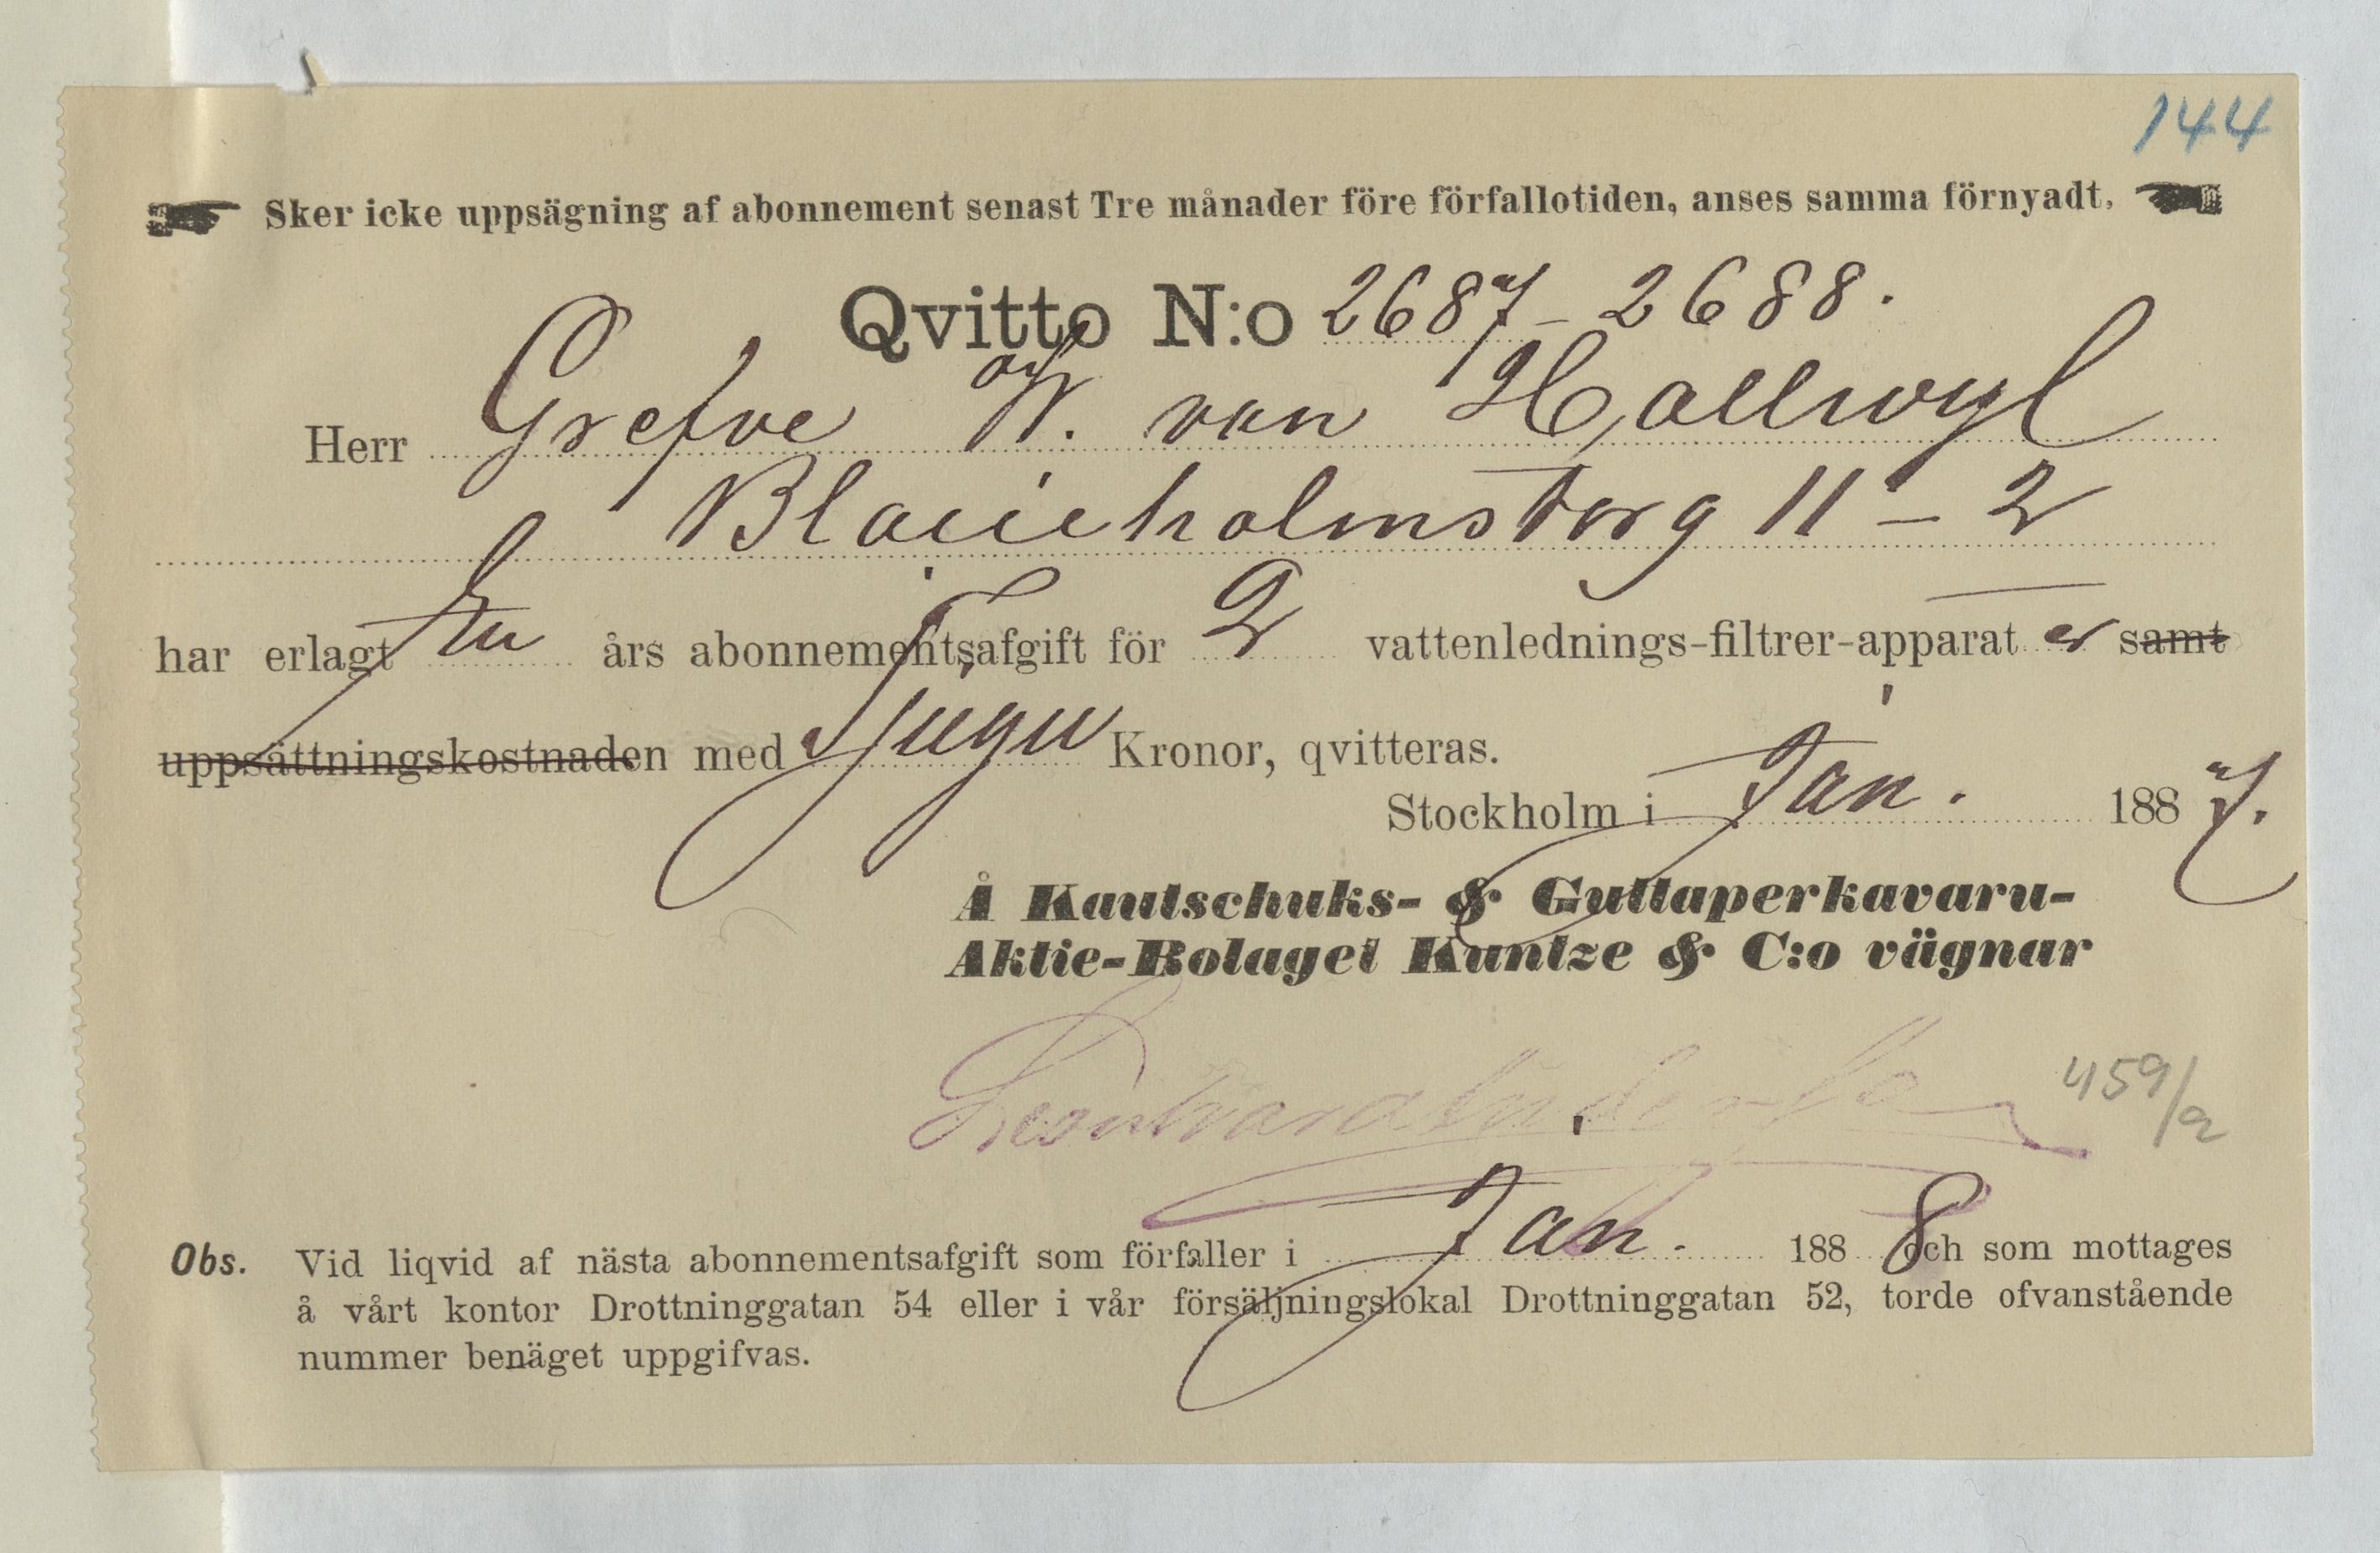 144
Sker icke uppsägning af abonnement senast Tre månader före förfallotiden, anses samma förnyadt.
Qvitto N:o 2687-2688.
Herr Grefve W. von Hallwyl
Blasieholmstorg 11-2
har erlagt Ett års abonnementsafgift för 2 vattenlednings-filtrer-apparat er samt
uppsättningskostnaden med Tjugu Kronor, qvitteras.
Stockholm i Jan. 1887.
Å Kautschuks- & Guttaperkavaru-
Aktie-Bolaget Kuntze & C:o vägnar
459/2
Obs. Vid liqvid af nästa abonnementsafgift som förfaller i Jan. 1888 och som mottages
å vårt kontor Drottninggatan 54 eller i vår försäljningslokal Drottninggatan 52, torde ofvanstående
nummer benäget uppgifvas.